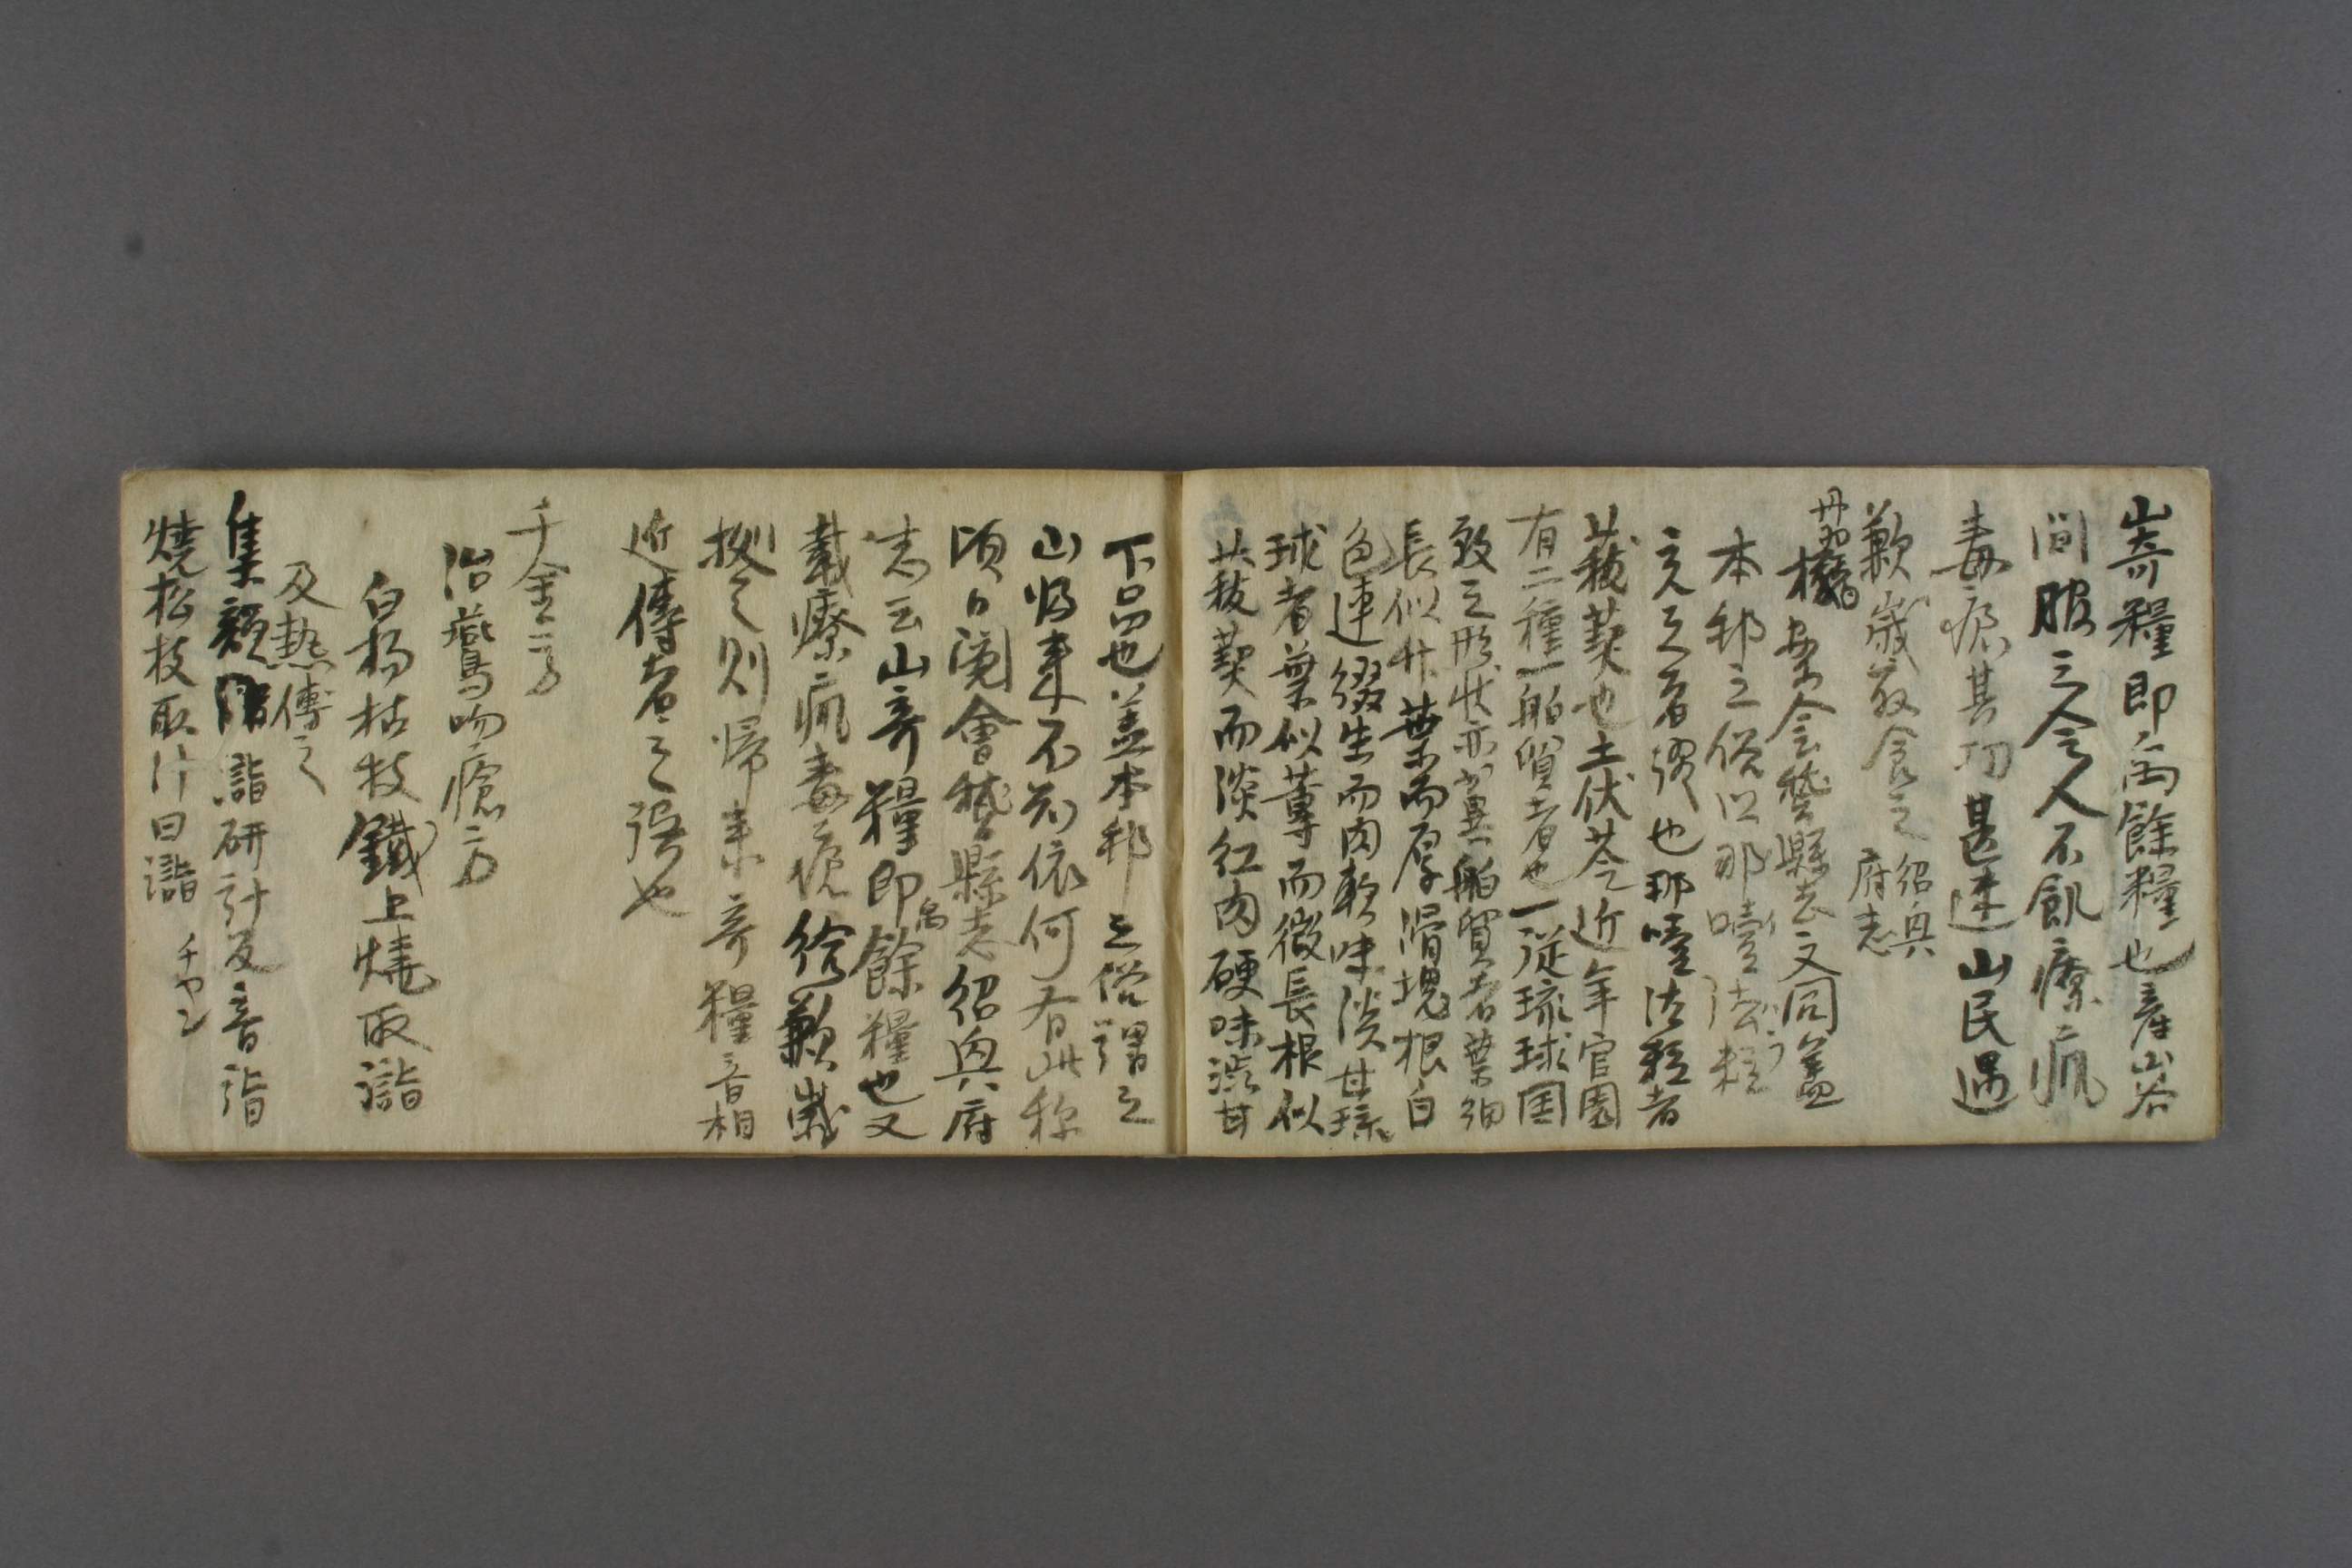 山奇糧即禹餘糧也産山谷
間服之令人不飢療瘋
毒瘡其功甚速山民遇
歉歳蒸食之紹興府志
按會稽縣志文同蓋
本邦之俗以那噎法粒
充之者謬也那噎法粒者
菝葜也土伏苓近年官園
有二種一舶貿者也一從琉球国
致之形状亦異舶貿者葉細
長似竹葉而厚滑塊根白
色連綴生而肉軟味淡甘琉
球者葉似葛而微長根似
菝葜而淡紅肉硬味渋甘
下品也盖本邦之俗謂之
山帰来不知依何有此称
頃日閲會稽縣志紹興府
志云山奇糧即禹餘糧也又
載療瘋毒瘡給歉歳
拠之則帰来奇糧音相
近傳者之誤也
千金方
治鷰吻瘡方
白楊枯枝鐵上焼取𧪡
及熱傅之
集韻𧪡研計反音詣
焼松枝取汁曰𧪡 チャン